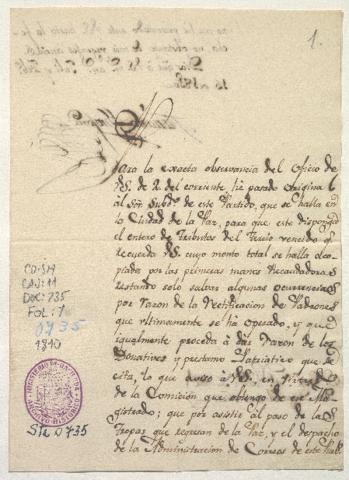 1.
Para la exacta observancia del Oficio de
VS. de 2 del corriente, he pasado original
al Sör Subdo. de este Partido, que se halla en
la Ciudad de la Paz, para que este disponga
el entero de Tributos del Tercio vencido q.
recuerda VS. cuyo monto total se halla aco-
piado por las primeras manos Recaudadoras
restando solo salvar algunas ocurrencias
por razon de la Rectificacion de Padrones
que ultimamente se ha operado, y que
igualmente proceda á dar razon de los
Donativos y prestamo Patriotico que se
cita, lo que aviso á VS. en
de la Comision que obtengo de ese Ma-
gistrado; que por asistir al paso de las
Tropas que regresan de la Paz, y el despacho
de la Administracion de Correos de este
CD: SM
CAJ: 11
DOC: 735
FOL: 1
0735
1810
MINISTERIO DE HACIENDA
ARCHIVO HISTORICO
0735